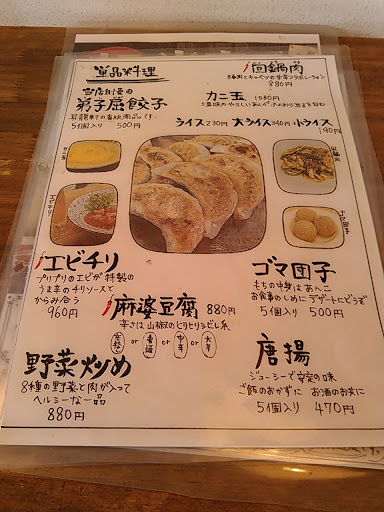 単品料理
当店自慢の
弟子屈餃子
5個入り 500円
回鍋肉
880円
カニ玉 1080円
ライス230円 大ライス340円 小ライス
190円
カニ玉
エビチリ
回鍋肉
ゴマ団子
エビチリ
プリプリのエビが特製の
うま辛のチリソースと
からみ合う
960円
麻婆豆腐 880円
辛さは山椒のピリピリシビレ系
or 普通 or 中辛 or 大辛
ゴマ団子
もちの中身はあんこ
お食事のしめに デザートにどうぞ
5個入り 500円
野菜炒め
8種の野菜と肉が入って
ヘルシーな一品
880円
唐揚
ジューシーで安定の味
ご飯のおかずに お酒のお共に
5個入り 470円